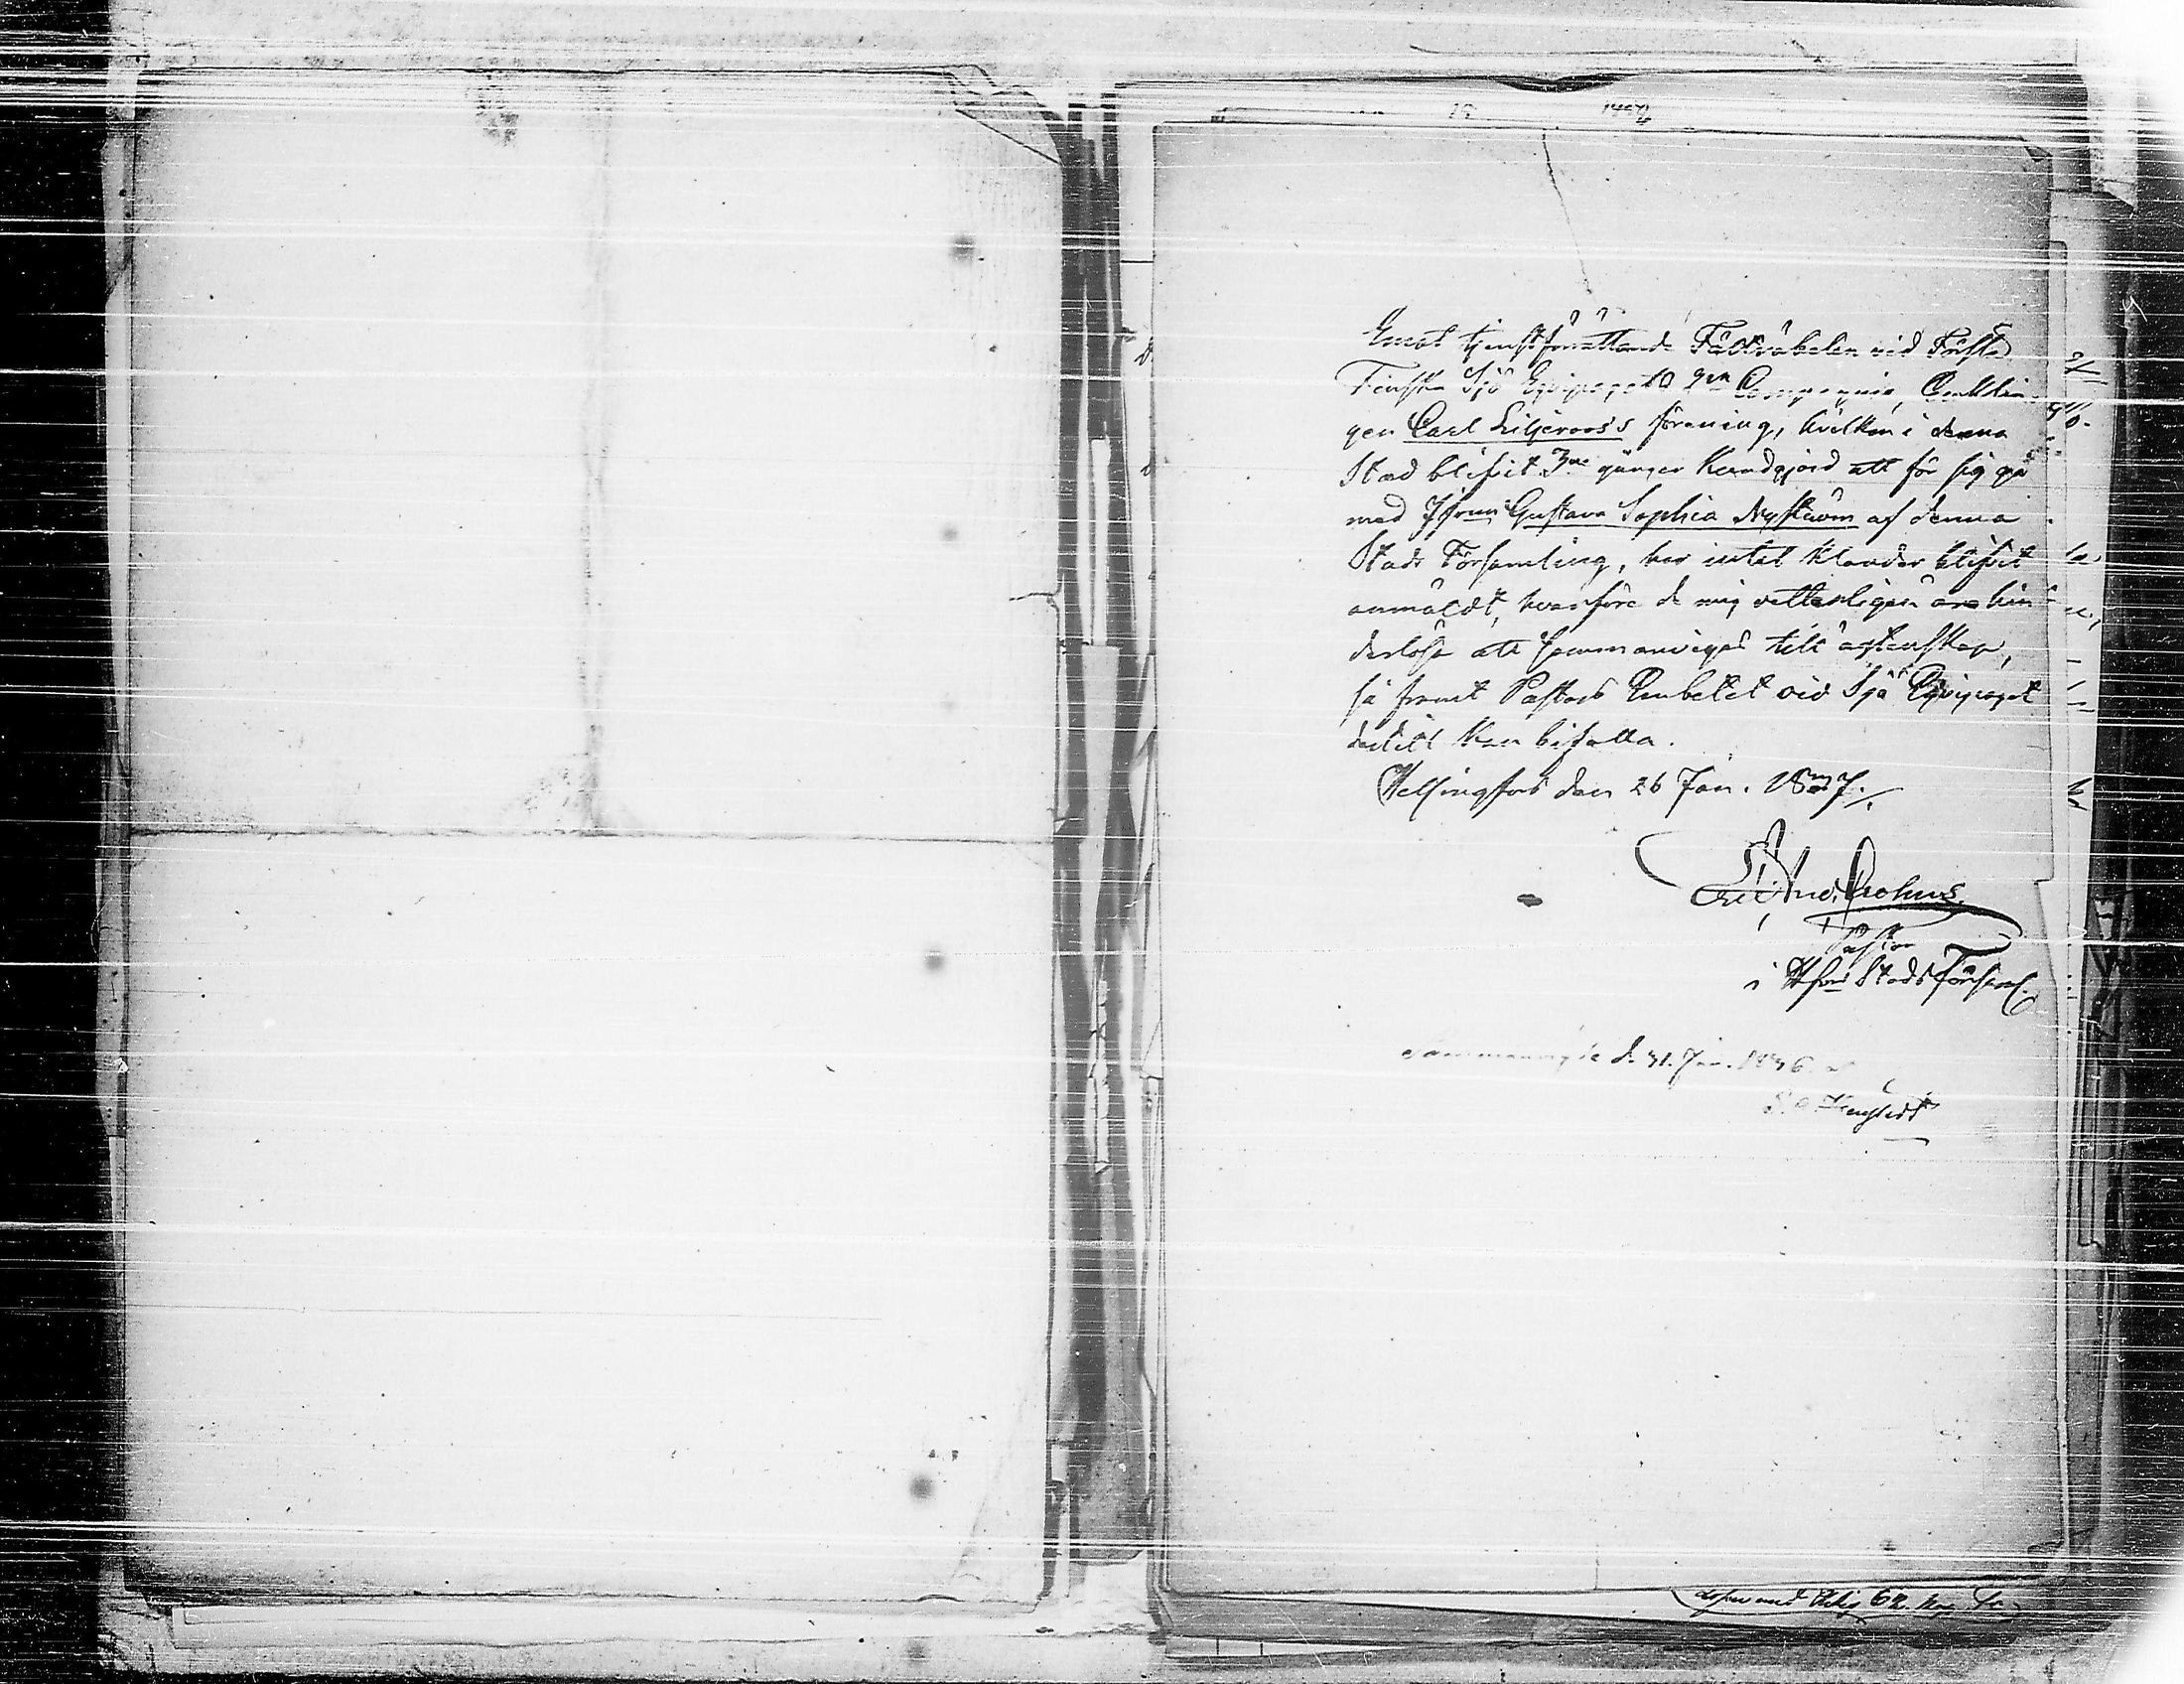 Emot tjenstförrättande Fältväbelen vid Första
Finska Sjö Equipagets 9de Compagnie, Ynglin-
gen Carl Liljeroos's förening, hvilken i denna
Stad blifvit 3ne gånger kundgjord att för sig gå
med Jfrun Gustava Sophia Nyström af denna
Stads Församling, har intet klander blifvit
anmäldt, hvarföre de mig vetterligen äro hin-
derlöse att sammanvigas till äktenskap,
så framt Pastors Embetet vid Sjö Equipaget
dertill kan bifalla.
Helsingfors den 26 Jan. 1837.
And. Crohns.
Pastor
i Hfors Stads Församl.
Sammanvigde d. 31. Jan. 1836. af